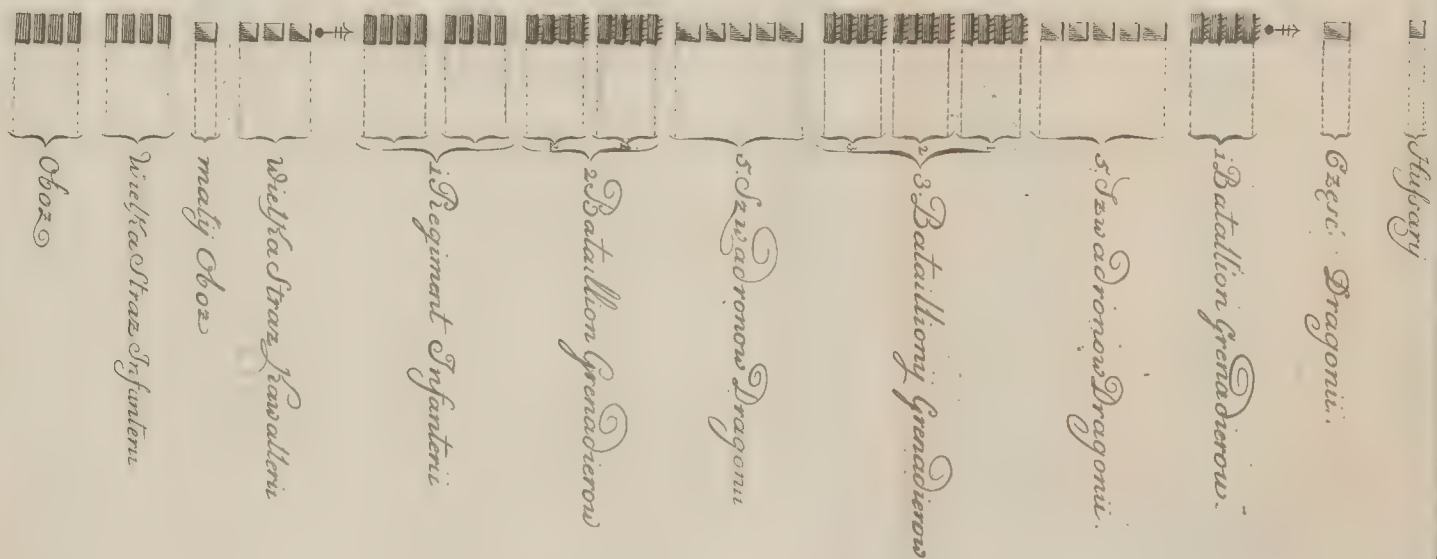 Huſsary
Częsć Dragonii.
1. Batallion Grenadierow.
5. Szwadronow Dragonii.
3. Batailliony Grenadierow
5. Szwadronow Dragonii
2 Bataillion Grenadierow
1. Regiment Infanterii
Wielka Straz Kawallerii
małÿ Oboz
Wielka Straz Infanterii
Oboz